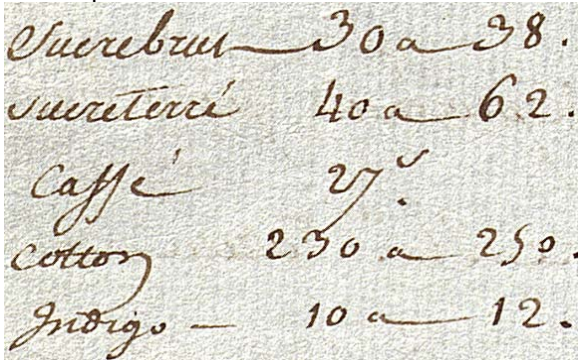 Sucre brut — 30 a 38.
Sucre Terré 40 a 62.
Caffé 27s.
Cotton 230 a 250.
Indigo — 10 a 12.